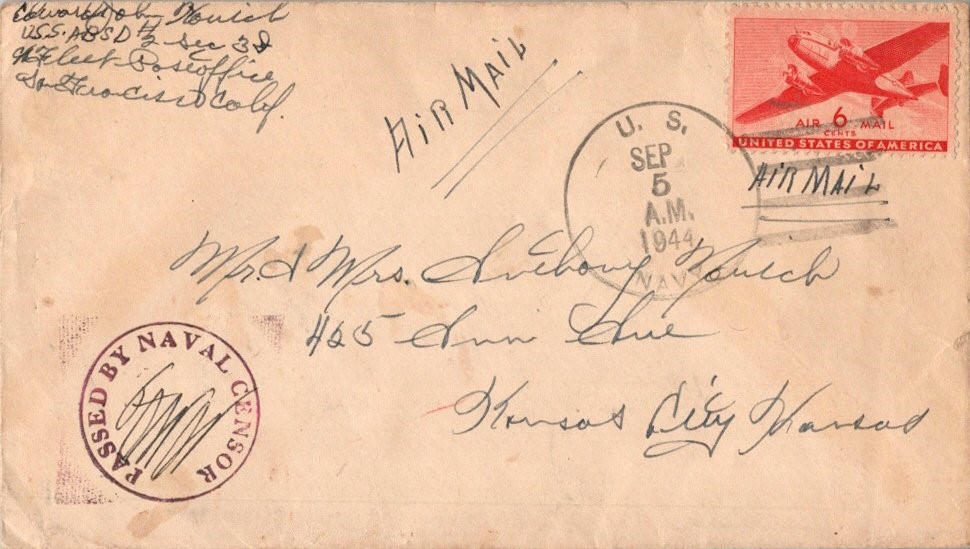 Edward John Novich
U.S.S. ABSD #2 Sec 3D
Fleet Postoffice
San Francisco Calif.
AIR MAIL
AIR 6 MAIL
CENTS
UNITED STATES OF AMERICA
U. S.
SEP
5
A.M.
1944
NAVY
AIR MAIL
Mr. & Mrs. Anthony Novich
425 Ann Ave
Kansas City Kansas
PASSED BY NAVAL CENSOR